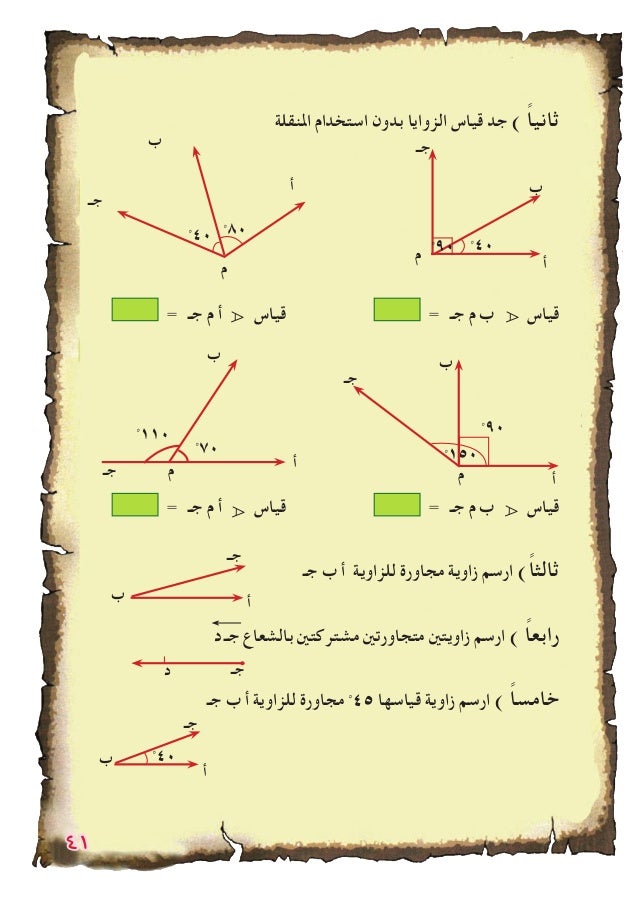 ثانياً ) جد قياس الزوايا بدون استخدام المنقلة
جـ
ب
أ
م
٩٠°
٤٠°
ب
أ
جـ
م
٤٠°
٨٠°
قياس ∢ ب م جـ =
قياس ∢ أ م جـ =
ب
جـ
أ
م
٩٠°
١٥٠°
ب
أ
جـ
م
١١٠°
٧٠°
قياس ∢ ب م جـ =
قياس ∢ أ م جـ =
ثالثاً ) ارسم زاوية مجاورة للزاوية أ ب جـ
جـ
ب
أ
رابعاً ) ارسم زاويتين متجاورتين مشتركتين بالشعاع جـ د
د
جـ
خامساً ) ارسم زاوية قياسها ٤٥° مجاورة للزاوية أ ب جـ
جـ
ب
أ
٤٠°
٤١